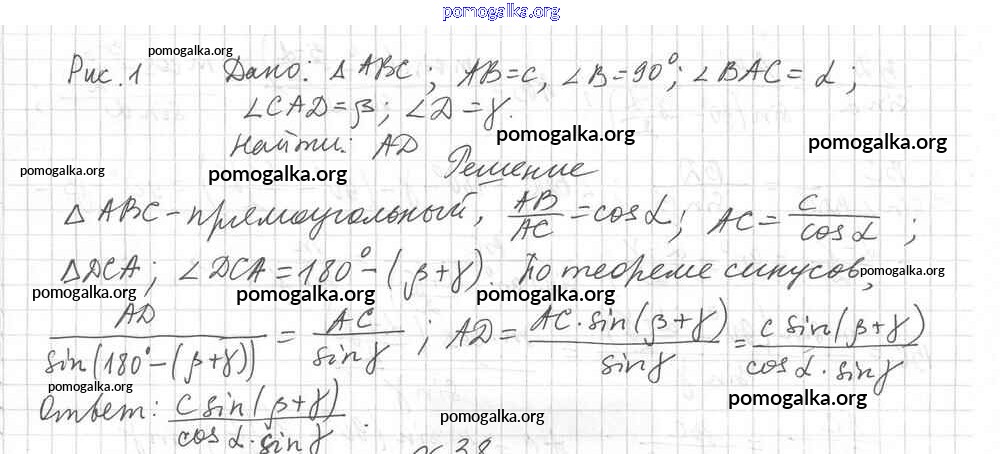 pomogalka.org
Рис. 1 pomogalka.org Дано: Δ ABC; AB=c, ∠B=90°; ∠BAC=α;
∠CAD=β; ∠D=γ.
pomogalka.org pomogalka.org
Найти: AD
pomogalka.org pomogalka.org Решение
Δ ABC-прямоугольный, AB/AC = cos α; AC = c/cos α;
Δ DCA; ∠DCA = 180° - (β+γ). По теореме синусов, pomogalka.org
pomogalka.org pomogalka.org pomogalka.org
AD/sin(180°-(β+γ)) = AC/sin γ; AD = AC·sin(β+γ)/sin γ = c sin(β+γ)/cos α · sin γ
pomogalka.org pomogalka.org
Ответ: c sin(β+γ)/cos α · sin γ. pomogalka.org